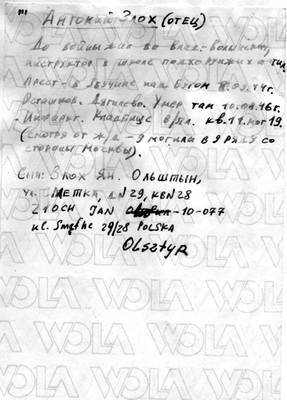 "' АНТОНИЙ ЗЛОХ (ОТЕЦ)
До войны жил во Влад-Волынском,
инструктор в школе подхорунжих а
Арест - в Звучине над Бугом 8.09.44г.
Осташков. Дягилево. Умер там 10.04.46г.
- Инфаркт. Кладбище кв. 11. мог 19.
(смотря от ж/д - 9 могила в 9 ряду со
стороны Москвы).
Сын: Злох Ян. Ольштын,
ул. Метка, д N 29, кв N 28
ZŁOCH JAN -10-077
ul. 29/28 POLSKA
Olsztyn
WOLA